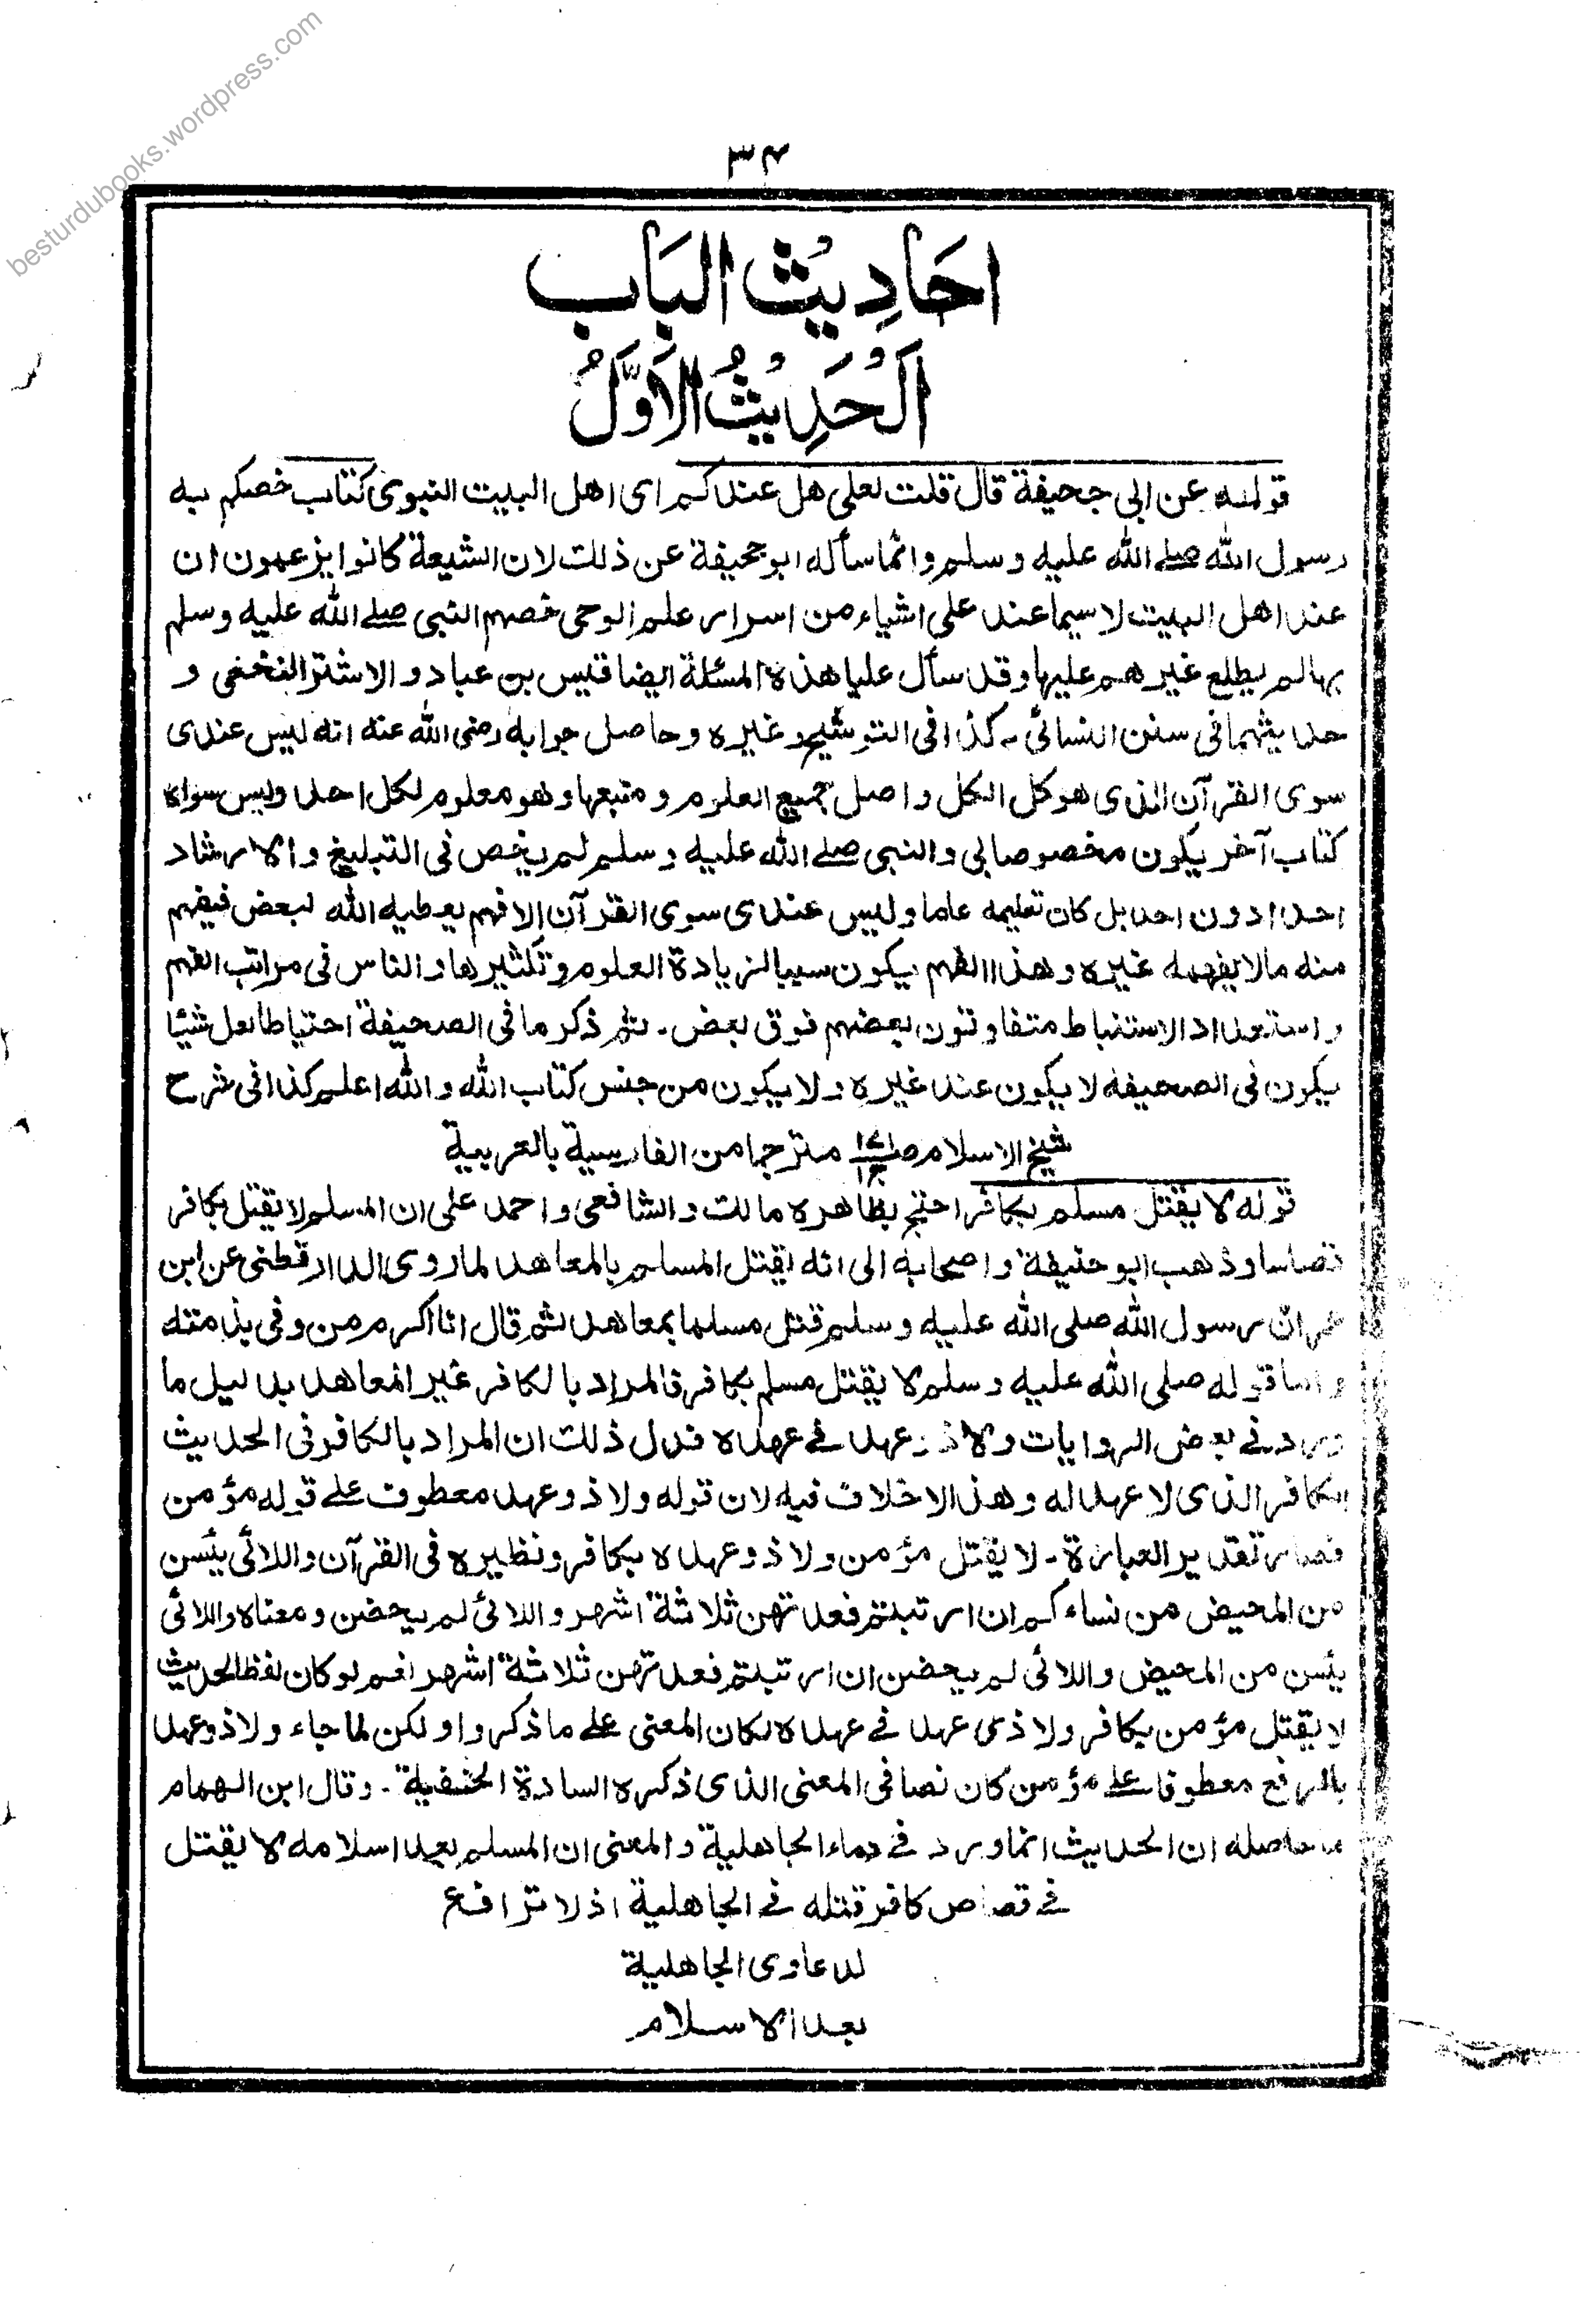 besturdubooks.wordpress.com
۳۴
احَادِيْثُ البَاب
اَلْحَدِيْثُ الْاَوَّلُ
قوله عن ابي جحيفة قال قلت لعلي هل عندكم اى اهل البيت النبوى كتاب خصكم به
رسول الله صلے الله عليه وسلم وانما سأله ابو جحيفة عن ذلك لان الشيعة كانوا يزعمون ان
عند اهل البيت لا سيما عند علي اشياء من اسرار علم الوحى خصهم النبى صلے الله عليه وسلم
بها لم يطلع غيرهم عليها وقد سأل عليا هذه المسئلة ايضا قيس بن عباد و الاشتر النخعى و
حديثهما فى سنن النسائى ـ كذا فى التوشيح وغيره وحاصل جوابه رضى الله عنه انه ليس عندى
سوى القرآن الذى هو كل الكل واصل جميع العلوم و منبعها وهو معلوم لكل احد وليس سواه
كتاب آخر يكون مخصوصا بى والنبى صلے الله عليه وسلم لم يخص فى التبليغ والارشاد
احدا دون احد بل كان تعليمه عاما وليس عندى سوى القرآن الا فهم يعطيه الله لبعض فيفهم
منه مالا يفهمه غيره وهذا الفهم يكون سببا لزيادة العلوم وتكثيرها والناس فى مراتب الفهم
واستعداد الاستنباط متفاوتون بعضهم فوق بعض ـ ثم ذكر ما فى الصحيفة احتياطا لعل شيئا
يكون فى الصحيفة لا يكون عند غيره ولا يكون من جنس كتاب الله والله اعلم كذا فى شرح
شيخ الاسلام مترجما من الفارسية بالعربية
قوله لا يقتل مسلم بكافر احتج بظاهره مالك والشافعى واحمد على ان المسلم لا يقتل بكافر
قصاصا وذهب ابو حنيفة واصحابه الى انه يقتل المسلم بالمعاهد لما روى الدارقطنى عن ابن
عمر ان رسول الله صلى الله عليه وسلم قتل مسلما بمعاهد ثم قال انا اكرم من وفى بذمته
واما قوله صلى الله عليه وسلم لا يقتل مسلم بكافر فالمراد بالكافر غير المعاهد بدليل ما
ورد فے بعض الروايات ولا ذو عهد فے عهده فدل ذلك ان المراد بالكافر فى الحديث
الكافر الذى لا عهد له وهذا لا خلاف فيه لان قوله ولا ذو عهد معطوف علے قوله مؤمن
فصار تقدير العبارة ـ لا يقتل مؤمن ولا ذو عهده بكافر ونظيره فى القرآن واللائى يئسن
من المحيض من نساءكم ان ارتبتم فعدتهن ثلاثة اشهر واللائى لم يحضن ومعناه واللائى
يئسن من المحيض واللائى لم يحضن ان ارتبتم فعدتهن ثلاثة اشهر نعم لو كان لفظ الحديث
لا يقتل مؤمن بكافر ولا ذى عهد فے عهده لكان المعنى علے ما ذكروا ولكن لما جاء ولا ذو عهد
بالرفع معطوفا علے مؤمن كان نصا فى المعنى الذى ذكره السادة الحنفية ـ وقال ابن الهمام
ما حاصله ان الحديث انما ورد فے دماء الجاهلية والمعنى ان المسلم بعد اسلامه لا يقتل
فے قصاص كافر قتله فے الجاهلية اذ لا ترافع
لدعاوى الجاهلية
بعد الاسلام